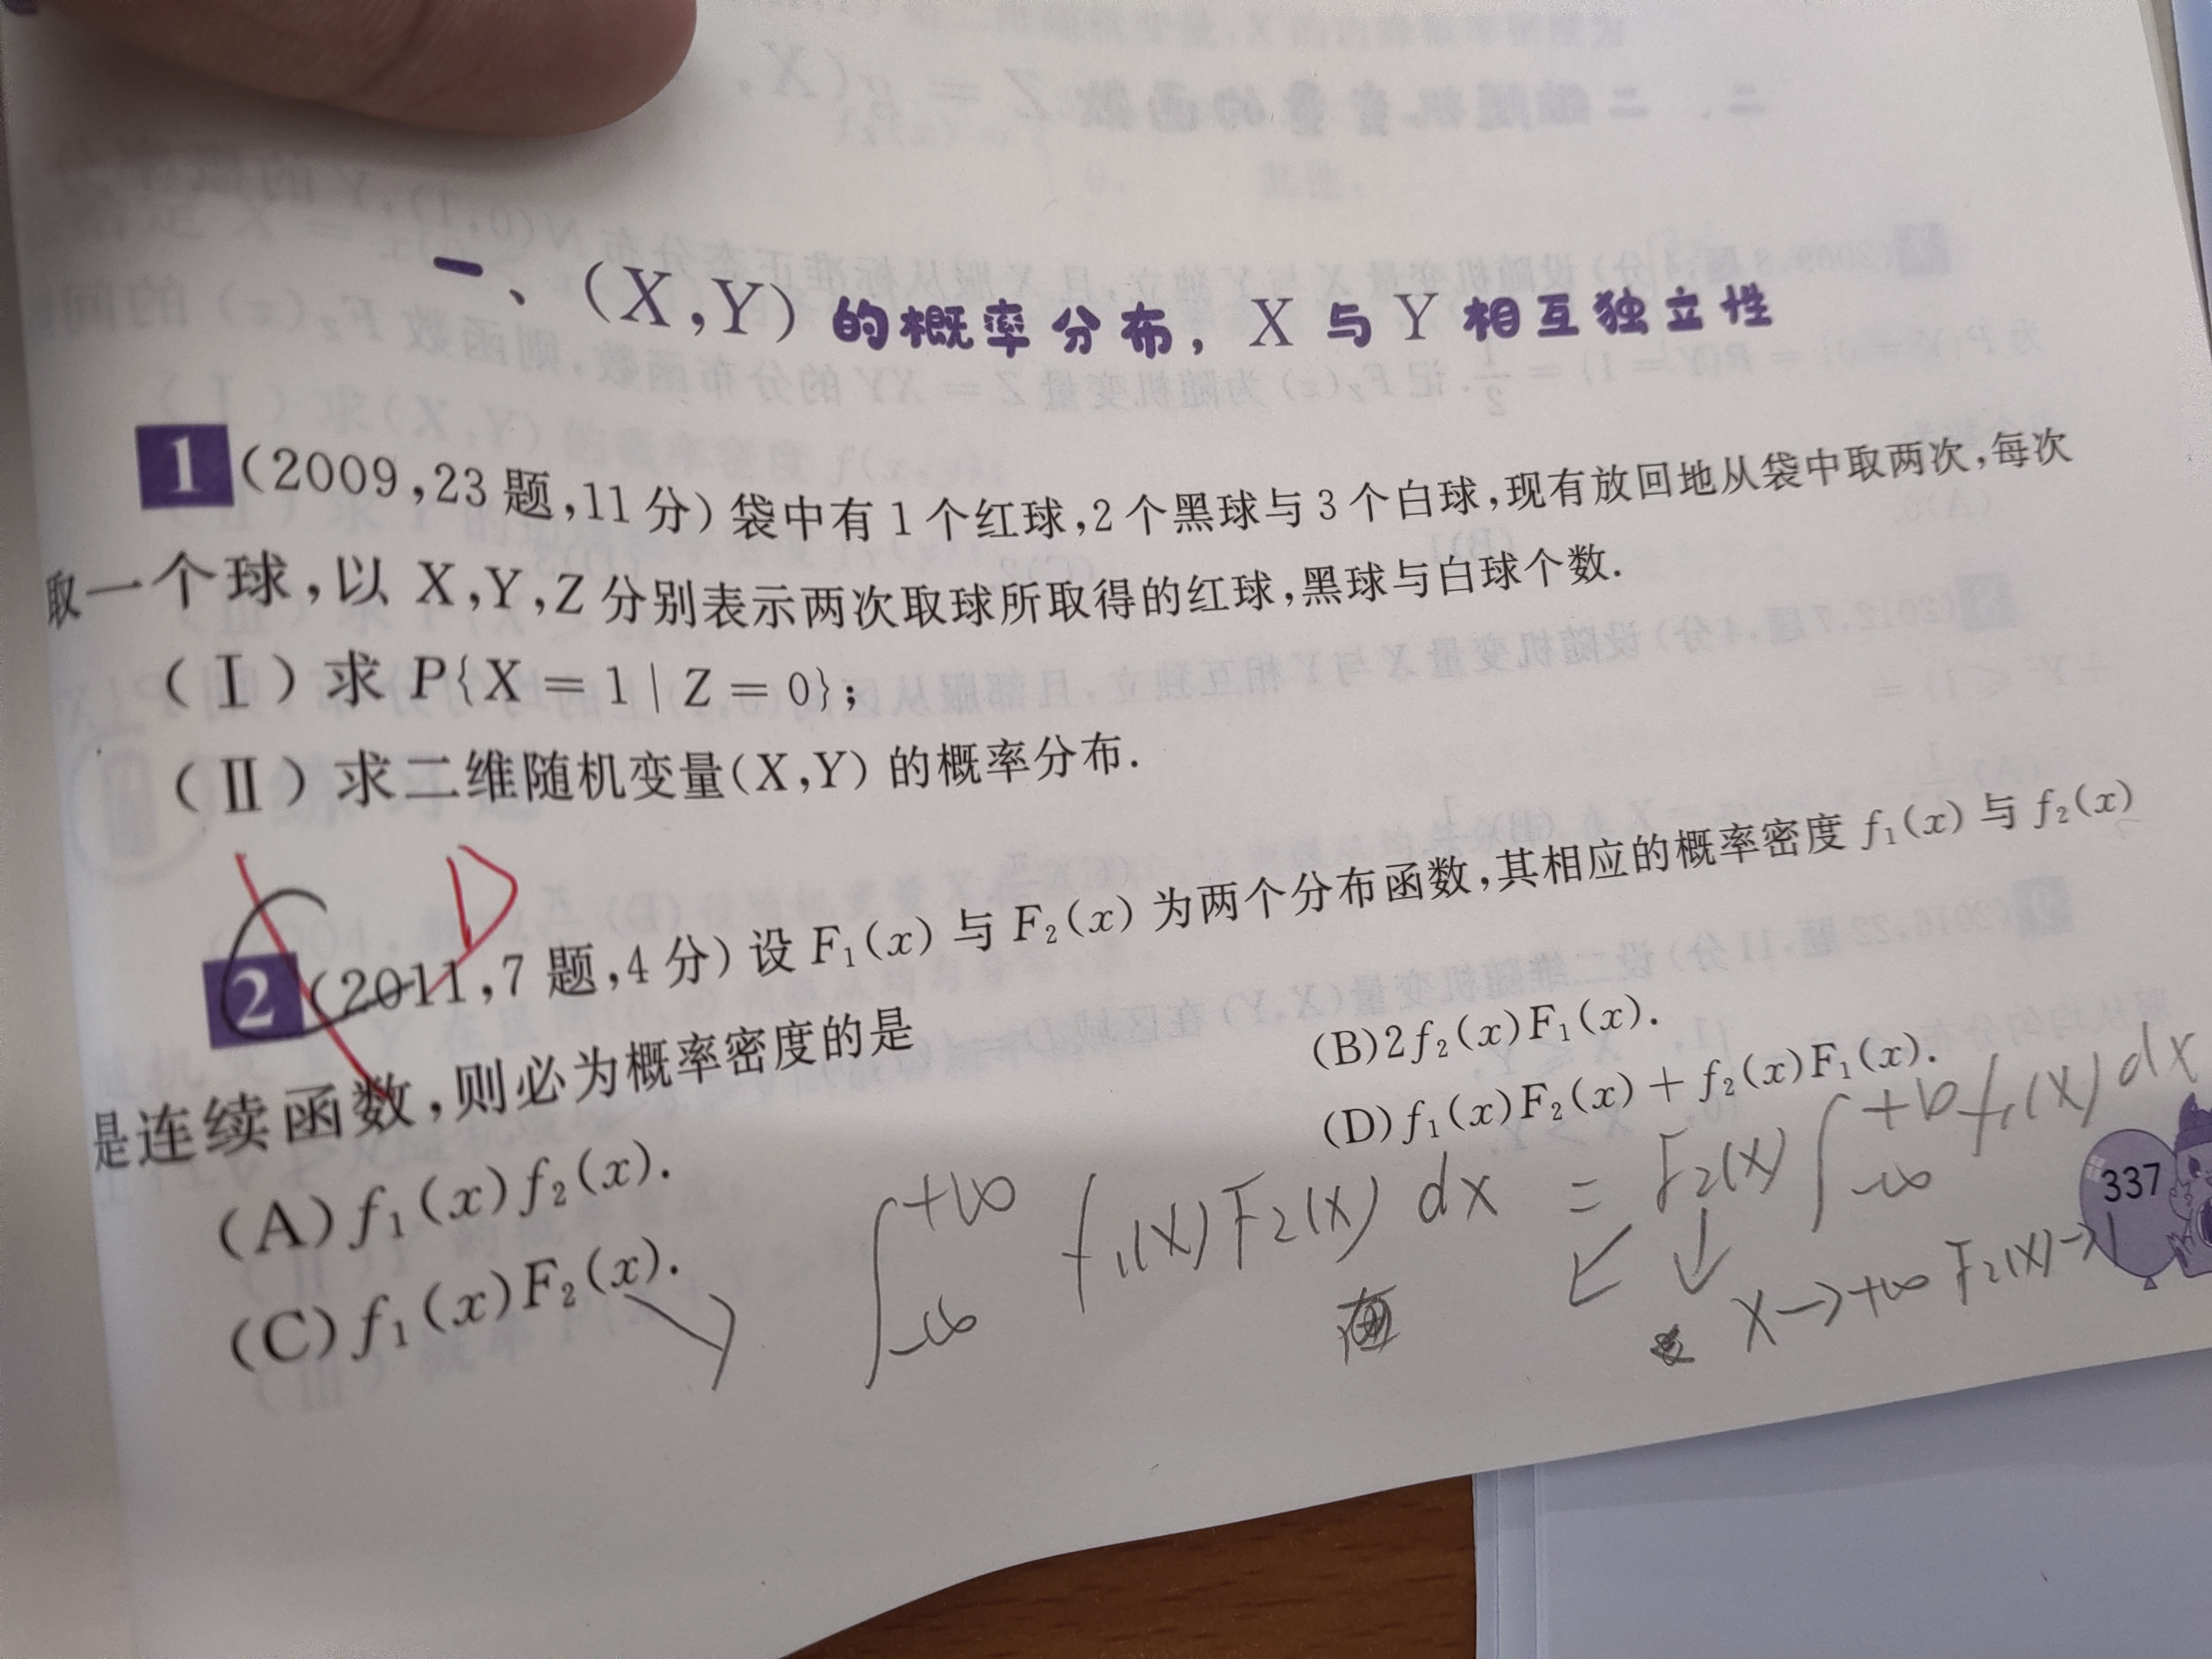 一、(X,Y)的概率分布, X与Y相互独立性
1 (2009,23题,11分) 袋中有1个红球,2个黑球与3个白球,现有放回地从袋中取两次,每次
取一个球,以 X,Y,Z 分别表示两次取球所取得的红球,黑球与白球个数.
(Ⅰ) 求 P{X = 1 | Z = 0};
(Ⅱ) 求二维随机变量(X,Y) 的概率分布.
C D
2 (2011,7题,4分) 设 F₁(x) 与 F₂(x) 为两个分布函数,其相应的概率密度 f₁(x) 与 f₂(x)
是连续函数,则必为概率密度的是
(A) f₁(x)f₂(x). (B) 2f₂(x)F₁(x).
(C) f₁(x)F₂(x). (D) f₁(x)F₂(x) + f₂(x)F₁(x).
∫_{-∞}^{+∞} f₁(x)F₂(x) dx = F₂(x) ∫_{-∞}^{+∞} f₁(x) dx
x→+∞ F₂(x)→1
337